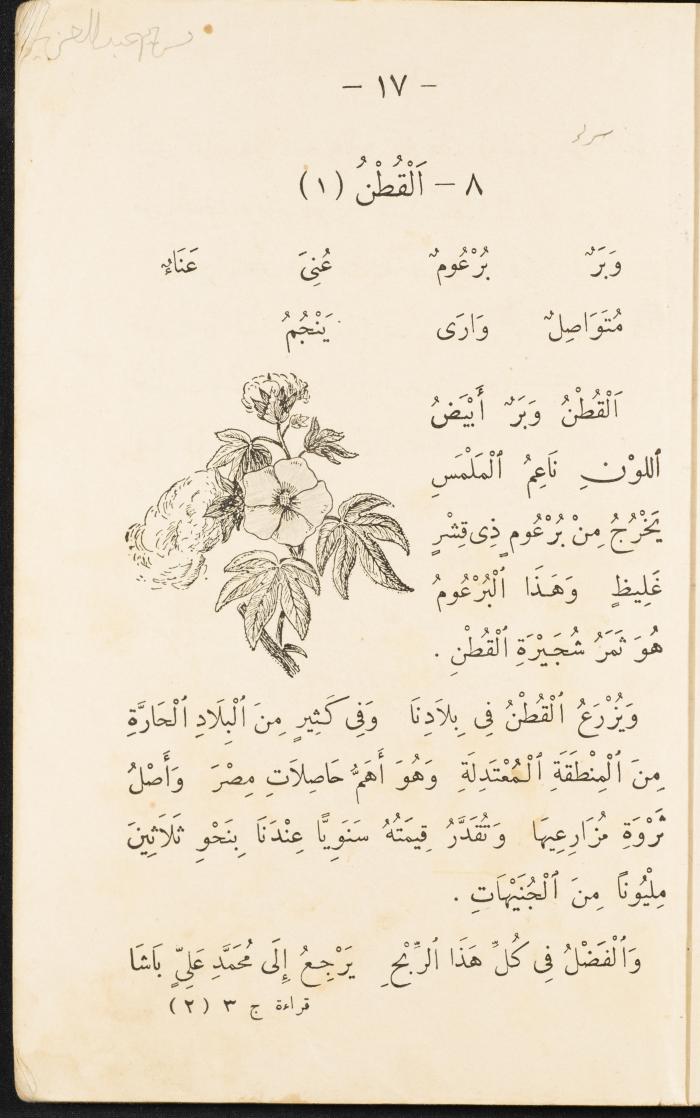 - ١٧ -
٨ - اَلْقُطْنُ (١)
وَبَرٌ بُرْعُومٌ عُنِىَ عَنَاءٌ
مُتَوَاصِلٌ وَارَى يَنْجُمُ
اَلْقُطْنُ وَبَرٌ أَبْيَضُ
ٱللوْنِ نَاعِمُ ٱلْمَلْمَسِ
يَخْرُجُ مِنْ بُرْعُومٍ ذِى قِشْرٍ
غَلِيظٍ وَهَذَا ٱلْبُرْعُومُ
هُوَ ثَمَرُ شُجَيْرَةِ ٱلْقُطْنِ .
وَيُزْرَعُ ٱلْقُطْنُ فِى بِلَادِنَا وَفِى كَثِيرٍ مِنَ ٱلْبِلَادِ ٱلْحَارَّةِ
مِنَ ٱلْمِنْطَقَةِ ٱلْمُعْتَدِلَةِ وَهُوَ أَهَمُّ حَاصِلَاتِ مِصْرَ وَأَصْلُ
ثَرْوَةِ مُزَارِعِيهَا وَتُقَدَّرُ قِيمَتُهُ سَنَوِيًّا عِنْدَنَا بِنَحْوِ ثَلَاثِينَ
مِلْيُونًا مِنَ ٱلْجُنَيْهَاتِ .
وَٱلْفَضْلُ فِى كُلِّ هَذَا ٱلرِّبْحِ يَرْجِعُ إِلَى مُحَمَّدِ عَلِىٍّ بَاشَا
قراءة ج ٣ (٢)